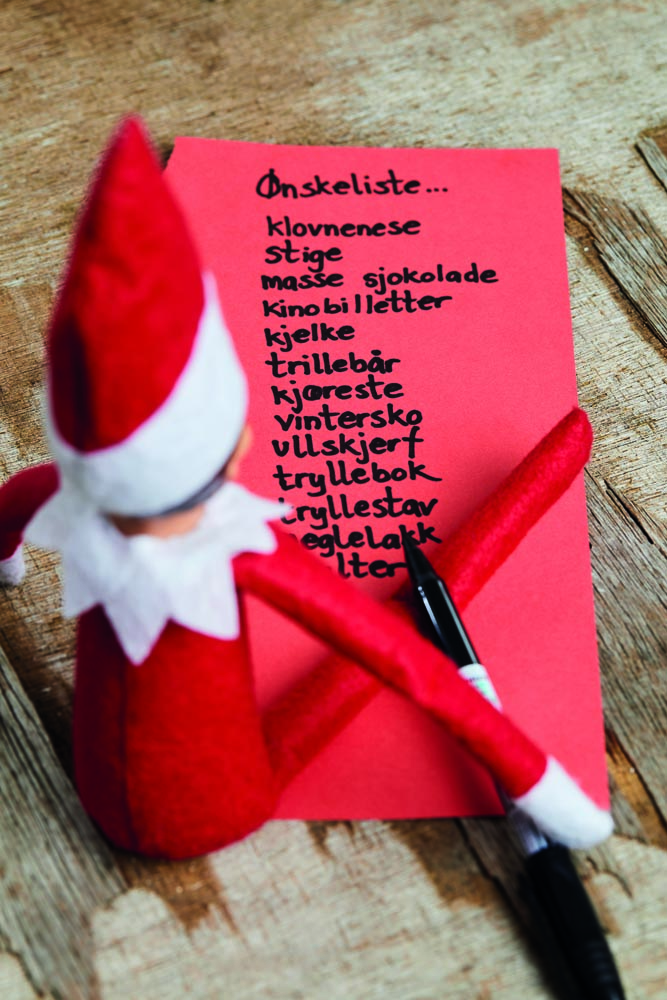 Ønskeliste...
klovnenese
stige
masse sjokolade
kinobilletter
kjelke
trillebår
kjøreste
vintersko
ullskjerf
tryllebok
tryllestav